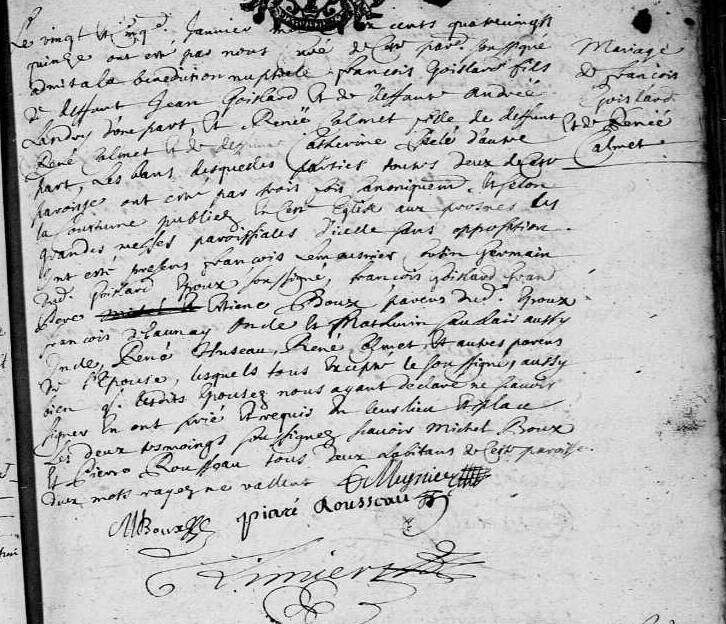 Le vingt et cinq Janvier cents quatrevingt
quinze ont esté par nous curé de cette paroisse soussigné
admis a la benediction nuptiale François Goislard fils
de deffunt Jean Goislard et de deffunte Andrée
Landry d'une part, Et Renée Calmet fille de deffunt
René Calmet et de Catherine d'autre
part, Les bans desquelles parties toutes deux de cette
paroisse ont esté par trois fois Et selon
la coustume publiez En cette Eglise aux prosnes des
grandes messes paroissiales d'icelle sans opposition.
Ont esté presens François Lemusnier cousin Germain
dud. Goislard Epoux soussigné, François Goislard grand
Pere Estienne Boux parens dud. Epoux
François Delaunay Oncle et Mathurin aussy
Oncle, René Huseau, René Calmet Et autres parens
de l'Epouse, lesquels tous excepté le soussigné, aussy
bien q. lesdits Epousez nous ayant declaré ne sçavoir
signer En ont prié et requis En leur lieu Et place
Les deux tesmoings soussignez sçavoir Michel Boux
Et Pierre Rousseau tous deux habitans de cette paroisse.
deux mots rayez ne vallent Musnier
MBoux piaré Rousseau
Limier
Mariage
de François
Goislard
et de Renée
Calmet.